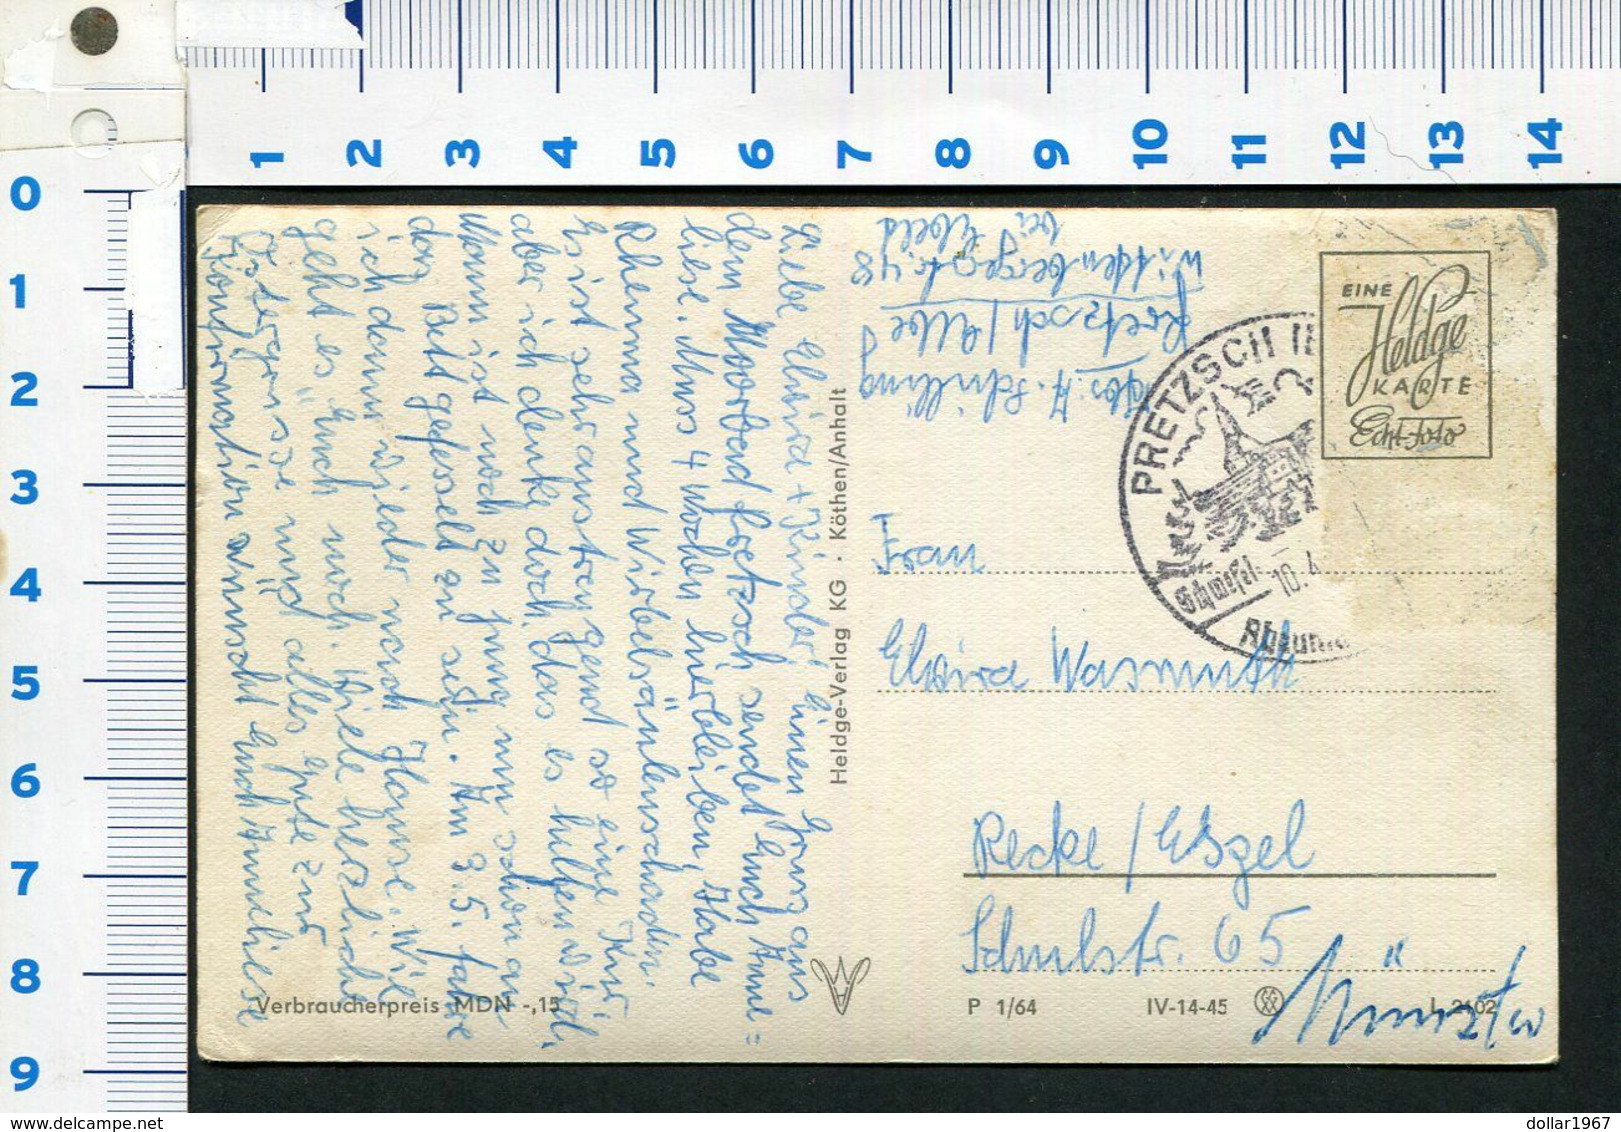 1 2 3 4 5 6 7 8 9 10 11 12 13 14
0
1
2
3
4
5
6
7
8
9
Liebe Elvira + Kinder! Einen Gruss aus
dem Moorbad Pretzsch sendet Euch Anne=
liese. Muss 4 Wochen hierbleiben, Habe
Rheuma und Wirbelsäulenschaden.
Es ist sehr anstrengend so eine Kur
aber ich denke doch, das es helfen wird,
Mann ist noch zu jung um schon an
das Bett gefesselt zu sein. Am 3.5. fahre
ich dann wieder nach Hause. Wie
geht es Euch noch. Viele herzliche
Ostergrüsse und alles gute zur
Konfirmation wünscht Euch Anneliese
Verbraucherpreis MDN -,15
Heldge-Verlag KG · Köthen/Anhalt
Abs: A. Schilling
Pretzsch/Elbe
Wittenbergerstr. 48
bei
PRETZSCH
Schwefel-
10. 4
Rheuma
EINE
Heldge
KARTE
Echt-Foto
Frau
Elvira Wasmuth
Recke / Espel
Schulstr. 65
Münster
P 1/64 IV-14-45 L 2102
dollar1967